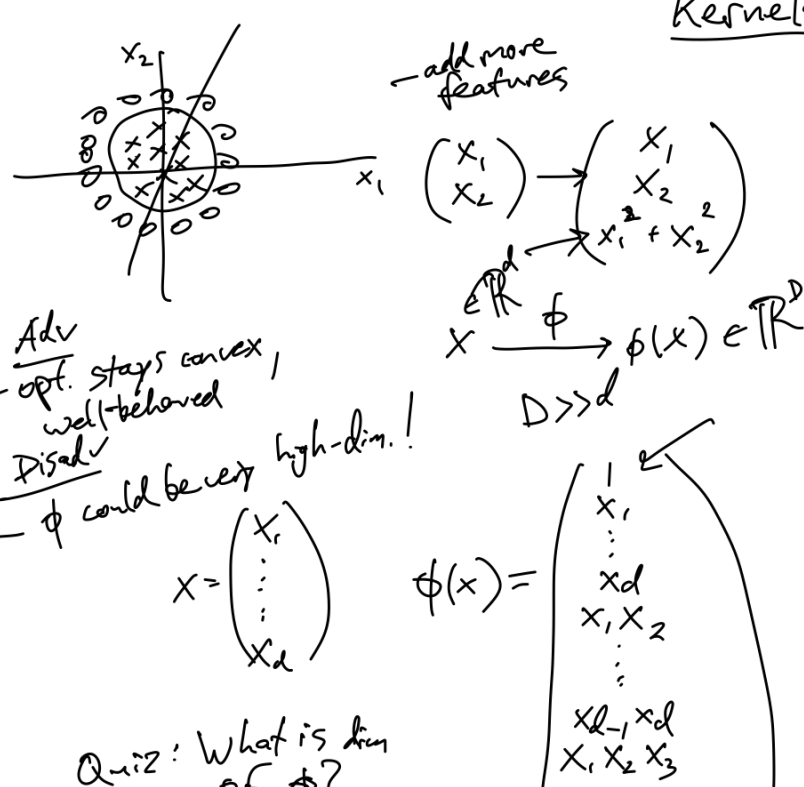 Kernel
x₂
x₁
- add more
features
(x₁
x₂) → (x₁
x₂
x₁² + x₂²)
∈ ℝᵈ
x →ϕ ϕ(x) ∈ ℝᴰ
D >> d
Adv
- opt. stays convex,
well-behaved
Disadv
- ϕ could be very high-dim.!
x = (x₁
⋮
⋮
x_d)
ϕ(x) = (1
x₁
⋮
x_d
x₁x₂
⋮
x_{d-1}x_d
x₁x₂x₃
Quiz: What is dim
of ϕ?